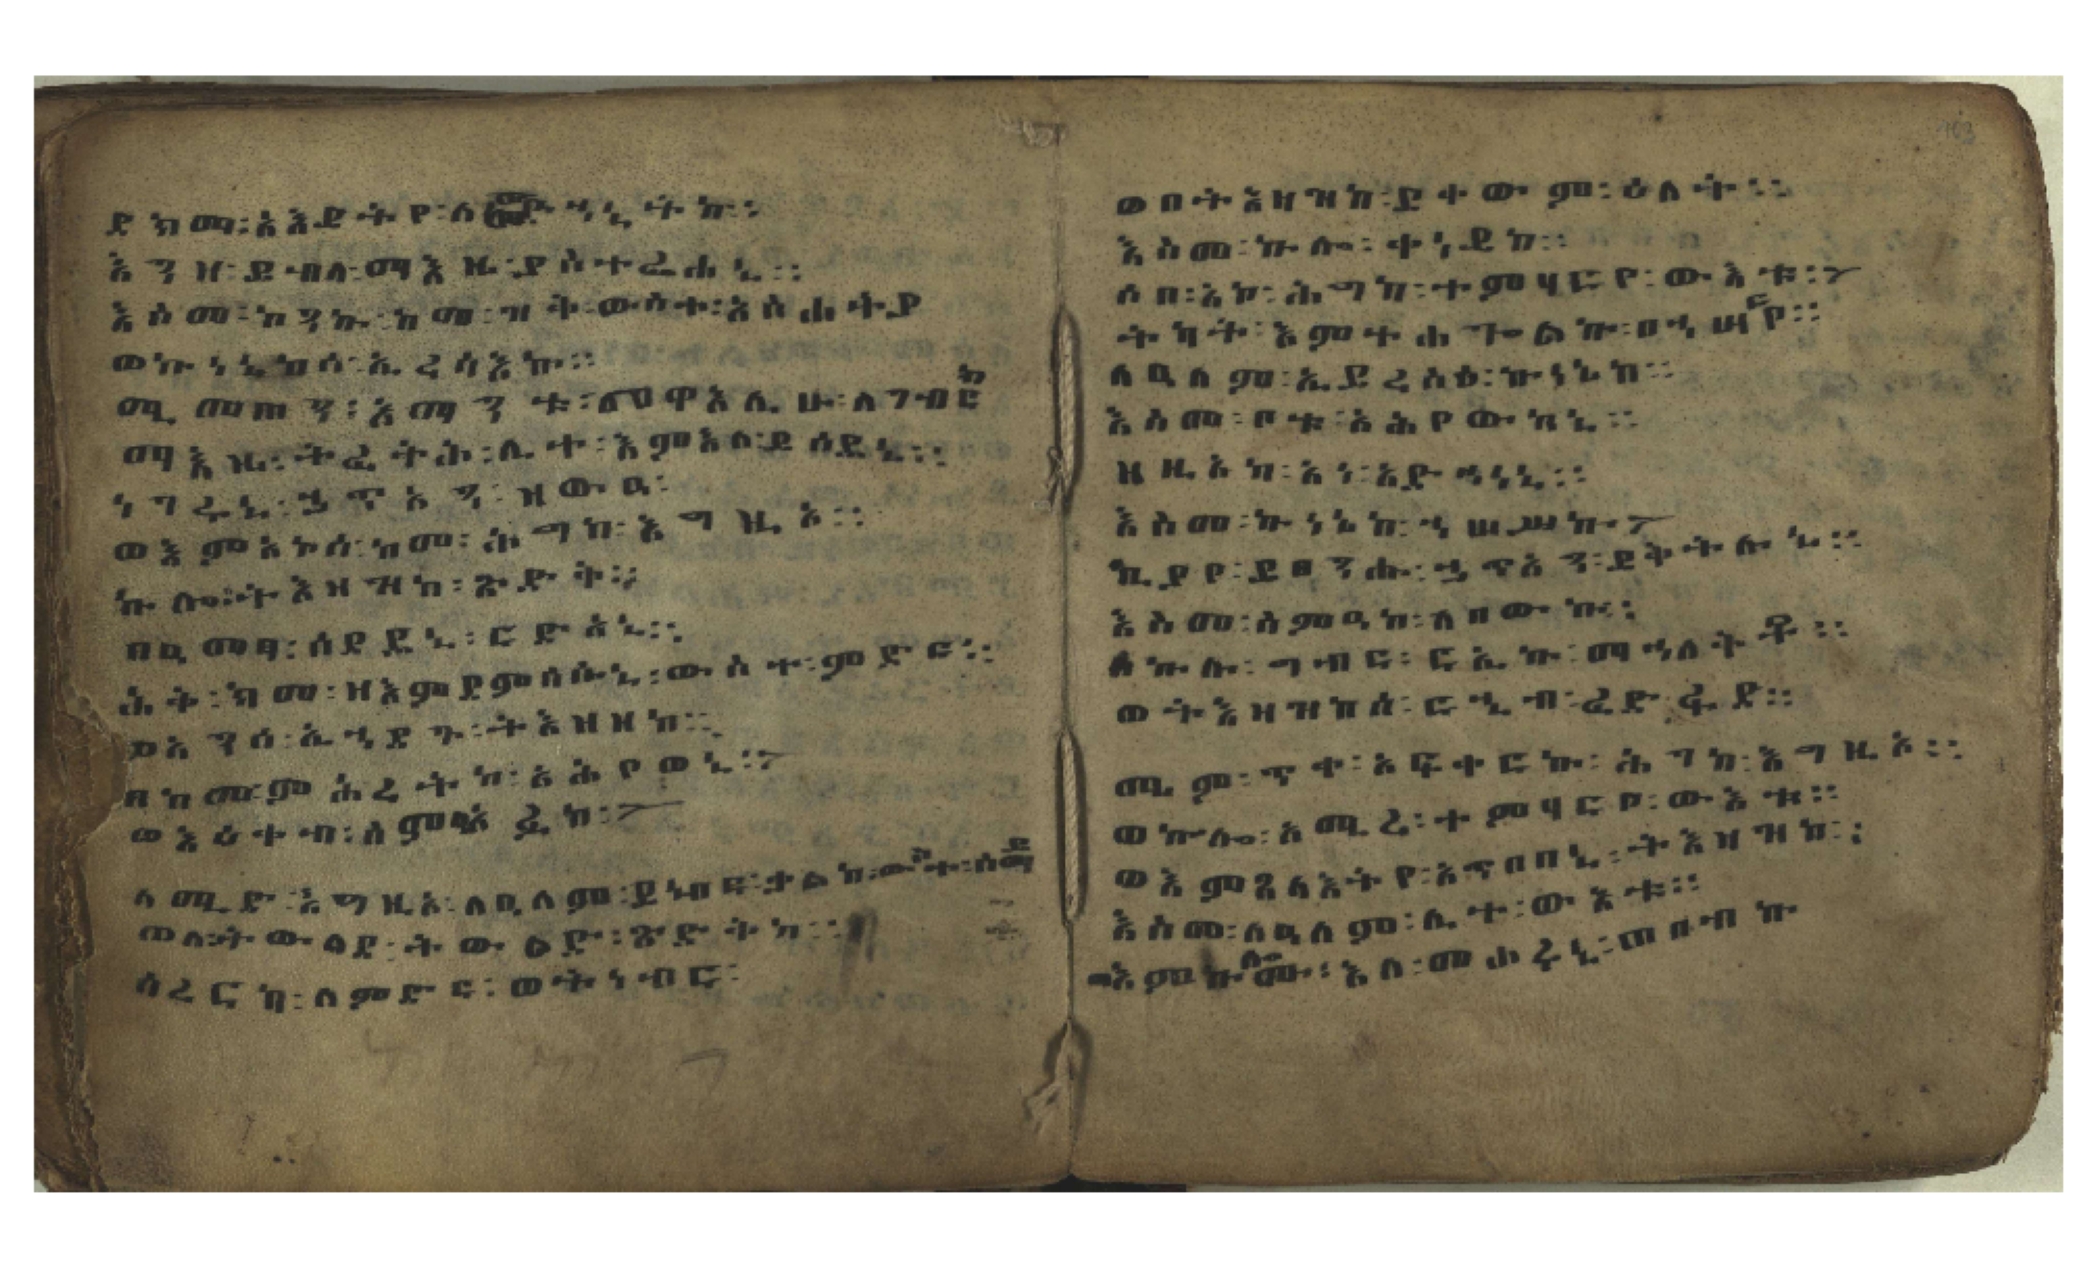 ደክማ፡አእይትየ፡ለ ኅኒትከ፡
እንዘ፡ይብላ፡ማእዜ፡ያስተፌሐኒ።
እስመ፡ኮንኩ፡ከመ፡ዝቅ፡ውስተ፡አስሐትያ
ወኩነኔከሰ፡ኢረሳእኩ።
ሚመጠን፡አማንቱ፡መዋእሊሁ፡ለገብርከ
ማእዜ፡ትፈትሕ፡ሊተ፡እምእለ፡ይሰደኒ።
ነገሩኒ፡ኃጥአን፡ዝውዐ፡
ወእምአኮሰ፡ከመ፡ሕግከ፡እግዚኦ።
ኩሉ፡ትእዛዝከ፡ጽድቅ፡
በዓመፃ፡ሰደዱኒ፡ርድአኒ።
ሕቀ፡ከመ፡ዘእምደምሰሱኒ፡ውስተ፡ምድር።
ወአንሰ፡ኢኀደጉ፡ትእዛዘከ።
በከመ፡ምሕረትከ፡አሕየወኒ፡
ወእዕቀብ፡ስምዐ አፉከ፡
ላሜድ፡እግዚኦ፡ለዓለም፡ይነብር፡ቃልከ፡ውስተ፡ሰማይ
ወለትውልደ፡ትውልድ፡ጽድቅከ።
ሳረርካ፡ለምድር፡ወትነብር፡
ወበትእዛዝከ፡ይቀውም፡ዕለት።
እስመ፡ኩሉ፡ቀነይከ።
ሶበ፡አኮ፡ሕግከ፡ተምሃርየ፡ውእቱ፡
ትካት፡እምተሐጐልኩ፡በኀሣርየ።
ለዓለም፡ኢይረስዕ፡ኩነኔከ።
እስመ፡ቦቱ፡አሕየውከኒ።
ዘዚአከ፡አነ፡አድኅነኒ።
እስመ፡ኩነኔከ፡ኀሠሥኩ፡
ኪያየ፡ይፀንሑ፡ኃጥአን፡ይቅትሉኒ።
እስመ፡ስምዓከ፡ለበውኩ፡
ለኩሉ፡ግብር፡ርኢኩ፡ማኅለቅቶ።
ወትእዛዝከሰ፡ርኂብ፡ፈድፋድ።
ሜም፡ጥቀ፡አፍቀርኩ፡ሕግከ፡እግዚኦ።
ወኵሎ፡አሚረ፡ተምሃርየ፡ውእቱ።
ወእምጸላእትየ፡አጥበበኒ፡ትእዛዝከ፡
እስመ፡ለዓለም፡ሊተ፡ውእቱ።
ወእምኩሎሙ፡እለ፡መሐሩኒ፡ጠበብኩ